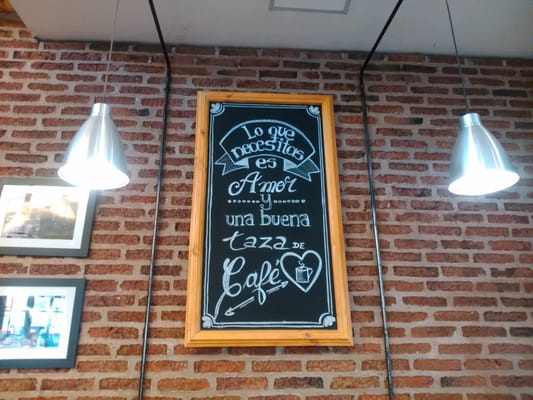 Lo que
necesitas
es
Amor
y
una buena
taza DE
Café